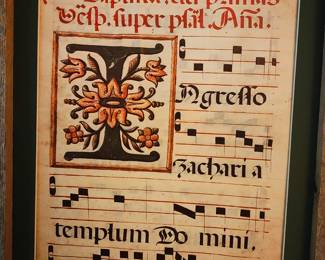 Vesp. super psal. Aña.
INgresso
zachari a
templum Do mini.